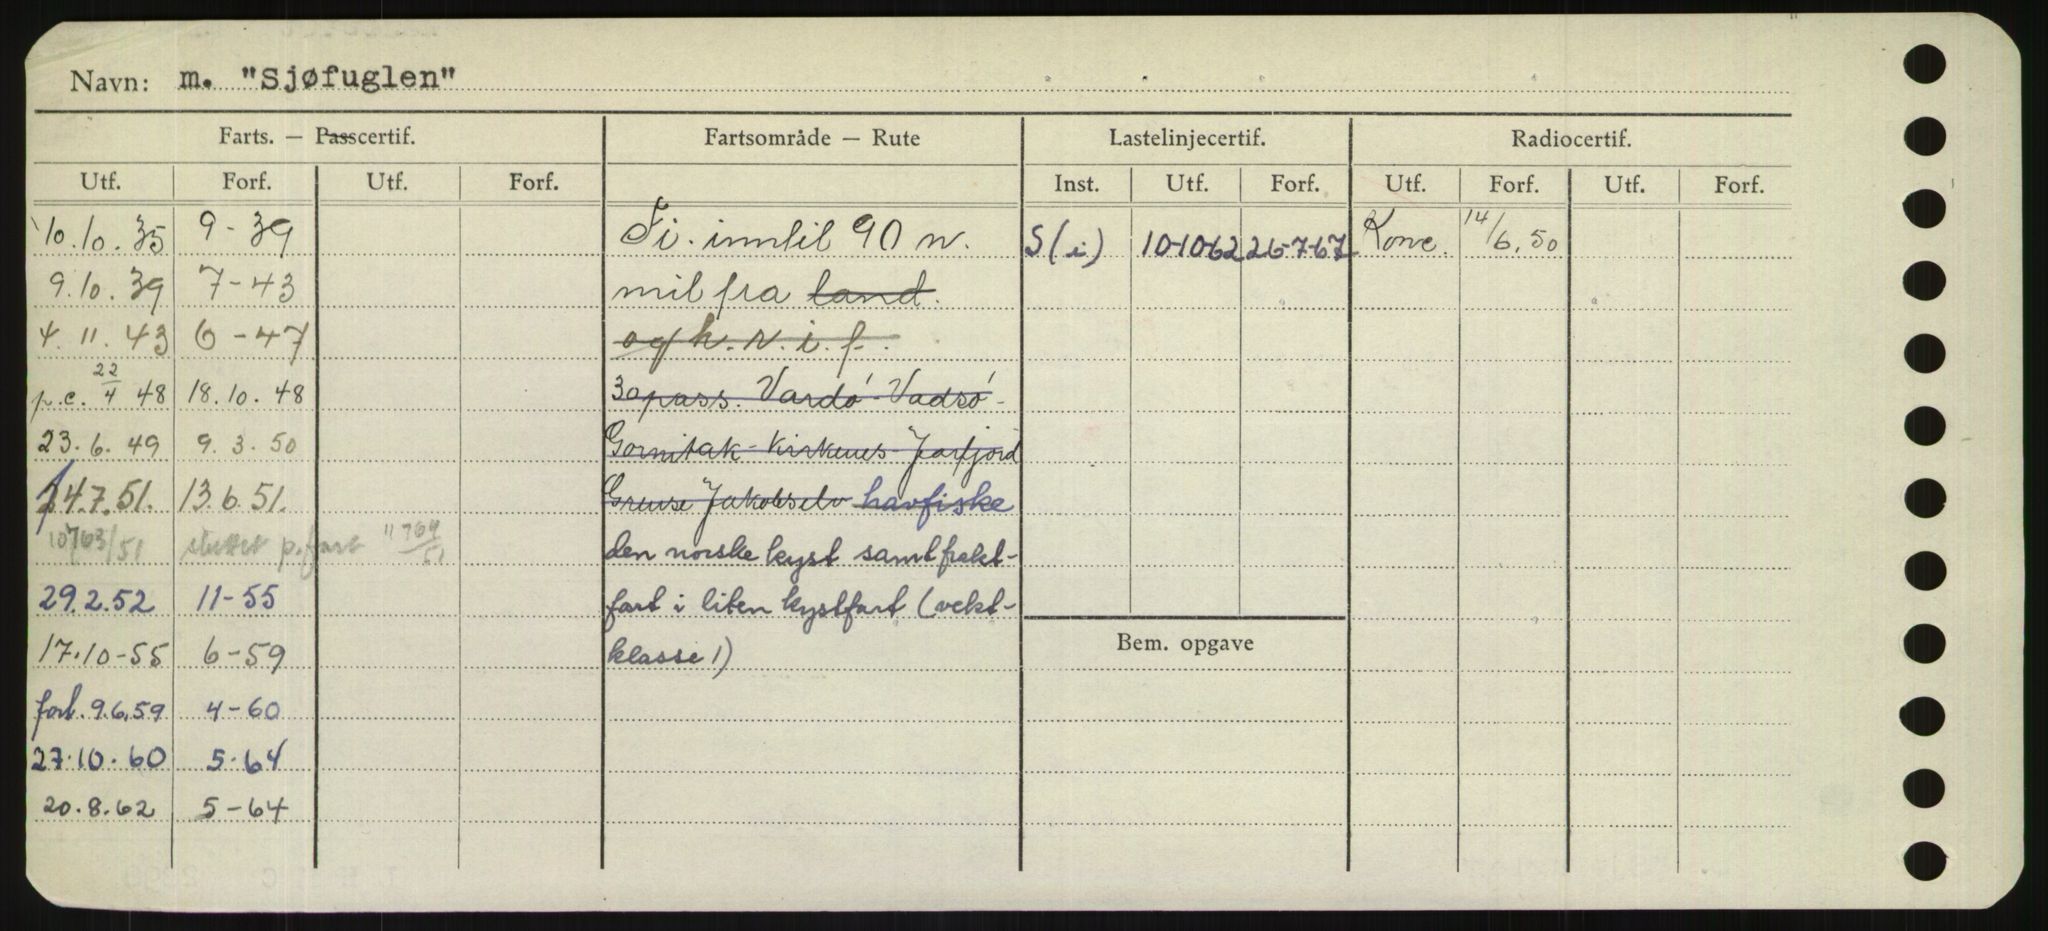 Navn: m. "Sjøfuglen"
Farts. — Passcertif. Fartsområde — Rute Lastelinjecertif. Radiocertif.
Utf. Forf. Utf. Forf. Inst. Utf. Forf. Utf. Forf. Utf. Forf.
10.10.35 9-39 Fi. inntil 90 n. S(i) 10-10-62 26-7-67 Konv. 14/6.50
9.10.39 7-43 mil fra land.
4.11.43 6-47 og h.r.i.f.
p.c. 22/4 48 18.10.48 30 pass. Vardø-Vadsø-
23.6.49 9.3.50 Gornitak-Kirkenes-Jarfjord
14.7.51. 13.6.51. Grense Jakobselv havfiske
10763/51 sluttet p.fart 11764/51 den norske kyst samt frakt-
29.2.52 11-55 fart i liten kystfart (vekt-
17.10-55 6-59 klasse 1) Bem. opgave
forl. 9.6.59 4-60
27.10.60 5-64
20.8.62 5-64